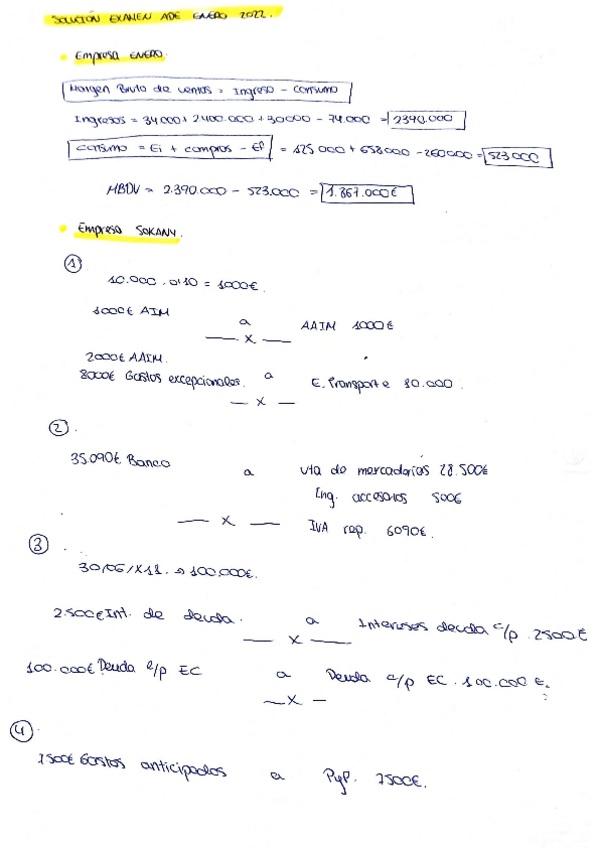 SOLUCIÓN EXAMEN ADE ENERO 2022.
Empresa ENERO.
Margen Bruto de ventas = Ingreso - consumo
Ingresos = 34000 + 2400.000 + 30000 - 74.000 = 2390.000
Consumo = Ei + compras - Ef = 125000 + 658000 - 260000 = 523000
MBDV = 2.390.000 - 523.000 = 1.867.000€
Empresa SOKANY.
1
10.000 . 0'10 = 1000€.
1000€ AIM a AAIM 1000€
— x —
2000€ AAIM.
8000€ Gastos excepcionales. a E. Transporte 10.000.
— x —
2.
35.090€ Banco a Vta de mercaderías 28.500€
Ing. accesorios 500€
— x — IVA rep. 6090€.
3.
30/06/X11. → 100.000€.
2.500€ Int. de deuda. a Intereses deuda c/p. 2500€
— x —
100.000€ Deuda l/p EC a Deuda c/p EC. 100.000 €.
— x —
4.
7500€ Gastos anticipados a PyP. 7500€.